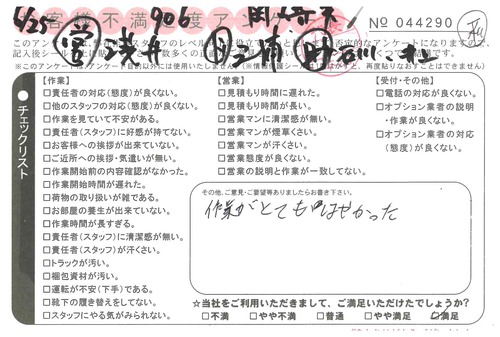 4/25
906
お客様不満足度アンケート
No 044290
このアンケートは、
否定的なアンケートになりますので、
※このアンケートはアンケート目的以外には使用いたしません
【作業】
□責任者の対応(態度)が良くない。
□他のスタッフの対応(態度)が良くない。
□作業を見ていて不安がある。
□責任者(スタッフ)に好感が持てない。
□お客様への挨拶が出来ていない。
□ご近所への挨拶・気遣いが無い。
□作業開始前の内容確認がなかった。
□作業開始時間が遅れた。
□荷物の取り扱いが雑である。
□お部屋の養生が出来ていない。
□作業時間が長すぎる。
□責任者(スタッフ)に清潔感が無い。
□責任者(スタッフ)が汗くさい。
□トラックが汚い。
□梱包資材が汚い。
□運転が不安(下手)である。
□靴下の履き替えをしてない。
□スタッフにやる気がみられない。
【営業】
□見積もり時間に遅れた。
□見積もり時間が長い。
□営業マンに清潔感が無い。
□営業マンが煙草くさい。
□営業マンが汗くさい。
□営業態度が良くない。
□営業の説明と作業が一致してない。
【受付・その他】
□電話の対応が良くない。
□オプション業者の説明
・作業が良くない。
□オプション業者の対応
(態度)が良くない。
チェックリスト
その他、ご意見・ご要望等ありましたらお書き下さい。
作業がとてもはやかった
☆当社をご利用いただきまして、ご満足いただけたでしょうか?
□不満 □やや不満 □普通 □やや満足 ☑満足